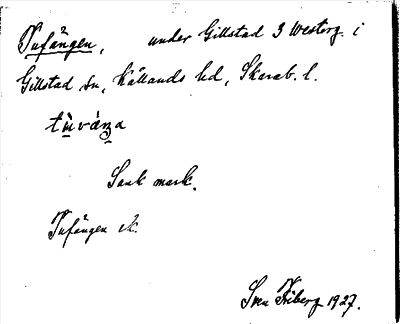 Tufängen, under Gillstad 3 Westerg. i
Gillstad sn, Kållands hd, Skarab. l.
tùváŋa
Sank mark.
Tufängen ek.
Sven Friberg 1927.